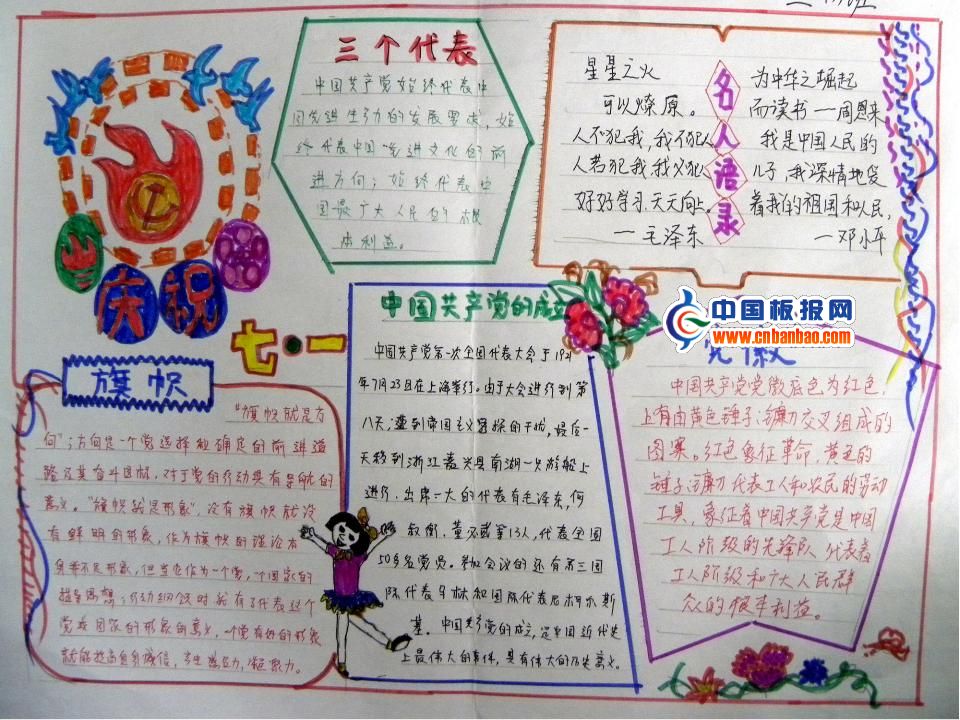 三个代表
中国共产党始终代表中
国先进生产力的发展要求，始
终代表中国先进文化的前
进方向；始终代表中
国最广大人民的根
本利益。
名人语录
星星之火
可以燎原。
人不犯我，我不犯人
人若犯我，我必犯人
好好学习，天天向上。
—毛泽东
为中华之崛起
而读书—周恩来
我是中国人民的
儿子，我深情地爱
着我的祖国和人民，
—邓小平
庆祝
七·一
中国板报网
www.cnbanbao.com
旗帜
"旗帜就是方
向"；方向是一个党选择和确定的前进道
路及其奋斗目标，对于党的行动具有导航的
意义。"旗帜就是形象"，没有旗帜就没
有鲜明的形象，作为旗帜的理论本
身并不是形象，但当它作为一个党，一个国家的
党或国家的形象的意义，一个党有好的形象
中国共产党的成立
中国共产党第一次全国代表大会于1921
年7月23日在上海举行。由于大会进行到第
八天，遭到帝国主义密探的干扰，最后一
天移到浙江嘉兴县南湖一只游船上
进行。出席一大的代表有毛泽东，何
叔衡，董必武等13人，代表全国
50多名党员。参加会议的还有第三国
际代表马林和国际代表尼柯尔斯
基。中国共产党的成立，是中国近代史
上最伟大的事件，具有伟大的历史意义。
党徽
中国共产党党徽底色为红色
上有由黄色锤子、镰刀交叉组成的
图案。红色象征革命，黄色的
锤子、镰刀代表工人和农民的劳动
工具，象征着中国共产党是中国
工人阶级的先锋队，代表着
工人阶级和广大人民群
众的根本利益。